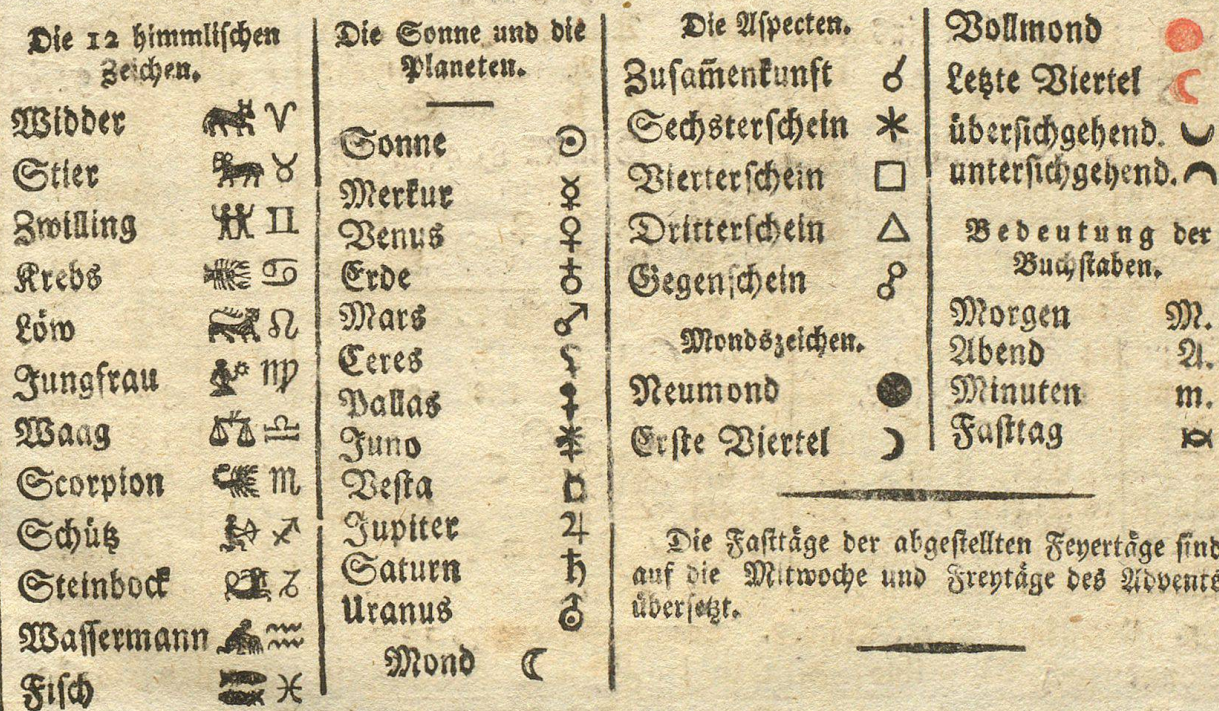 Die 12 himmlischen
Zeichen.
Widder ♈
Stier ♉
Zwilling ♊
Krebs ♋
Löw ♌
Jungfrau ♍
Waag ♎
Scorpion ♏
Schütz ♐
Steinbock ♑
Wassermann ♒
Fisch ♓
Die Sonne und die
Planeten.
Sonne ☉
Merkur ☿
Venus ♀
Erde ♁
Mars ♂
Ceres ⚳
Pallas ⚴
Juno ⚵
Vesta ⚶
Jupiter ♃
Saturn ♄
Uranus ⛢
Mond ☾
Die Aspecten.
Zusam̄enkunft ☌
Sechsterschein ⚹
Vierterschein □
Dritterschein △
Gegenschein ☍
Mondszeichen.
Neumond ●
Erste Viertel ☽
Vollmond ●
Letzte Viertel ☾
übersichgehend. ◡
untersichgehend. ◠
Bedeutung der
Buchstaben.
Morgen M.
Abend A.
Minuten m.
Fasttag
Die Fasttäge der abgestellten Feyertäge sind
auf die Mitwoche und Freytäge des Advents
übersetzt.